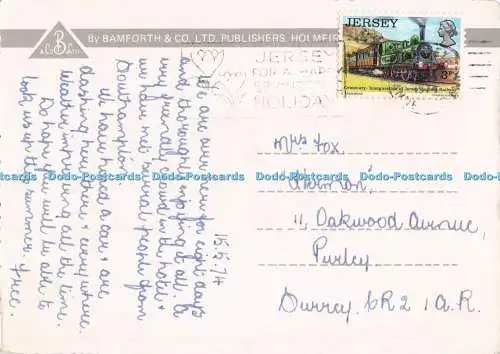 By BAMFORTH & CO., LTD. PUBLISHERS, HOLMFIR
B
& Co Ltd
JERSEY
FOR A HAPPY
HOLIDAY
JERSEY
3p
Centenary - Inauguration of Jersey Eastern Railway
15.5.74
We are over here for eight days
and thoroughly enjoying it all. A
very friendly crowd in the hotel &
we have met several people from
Southampton.
We have hired a car & are
dashing here there & everywhere.
Weather improving all the time.
Do hope you will be able to
look us up this summer.
Mrs Fox
11, Oakwood Avenue,
Purley
Surrey. CR2 1A.R.
Dodo-Postcards Dodo-Postcards Dodo-Postcards Dodo-Postcards Dodo-Postcards Dodo-Postcards